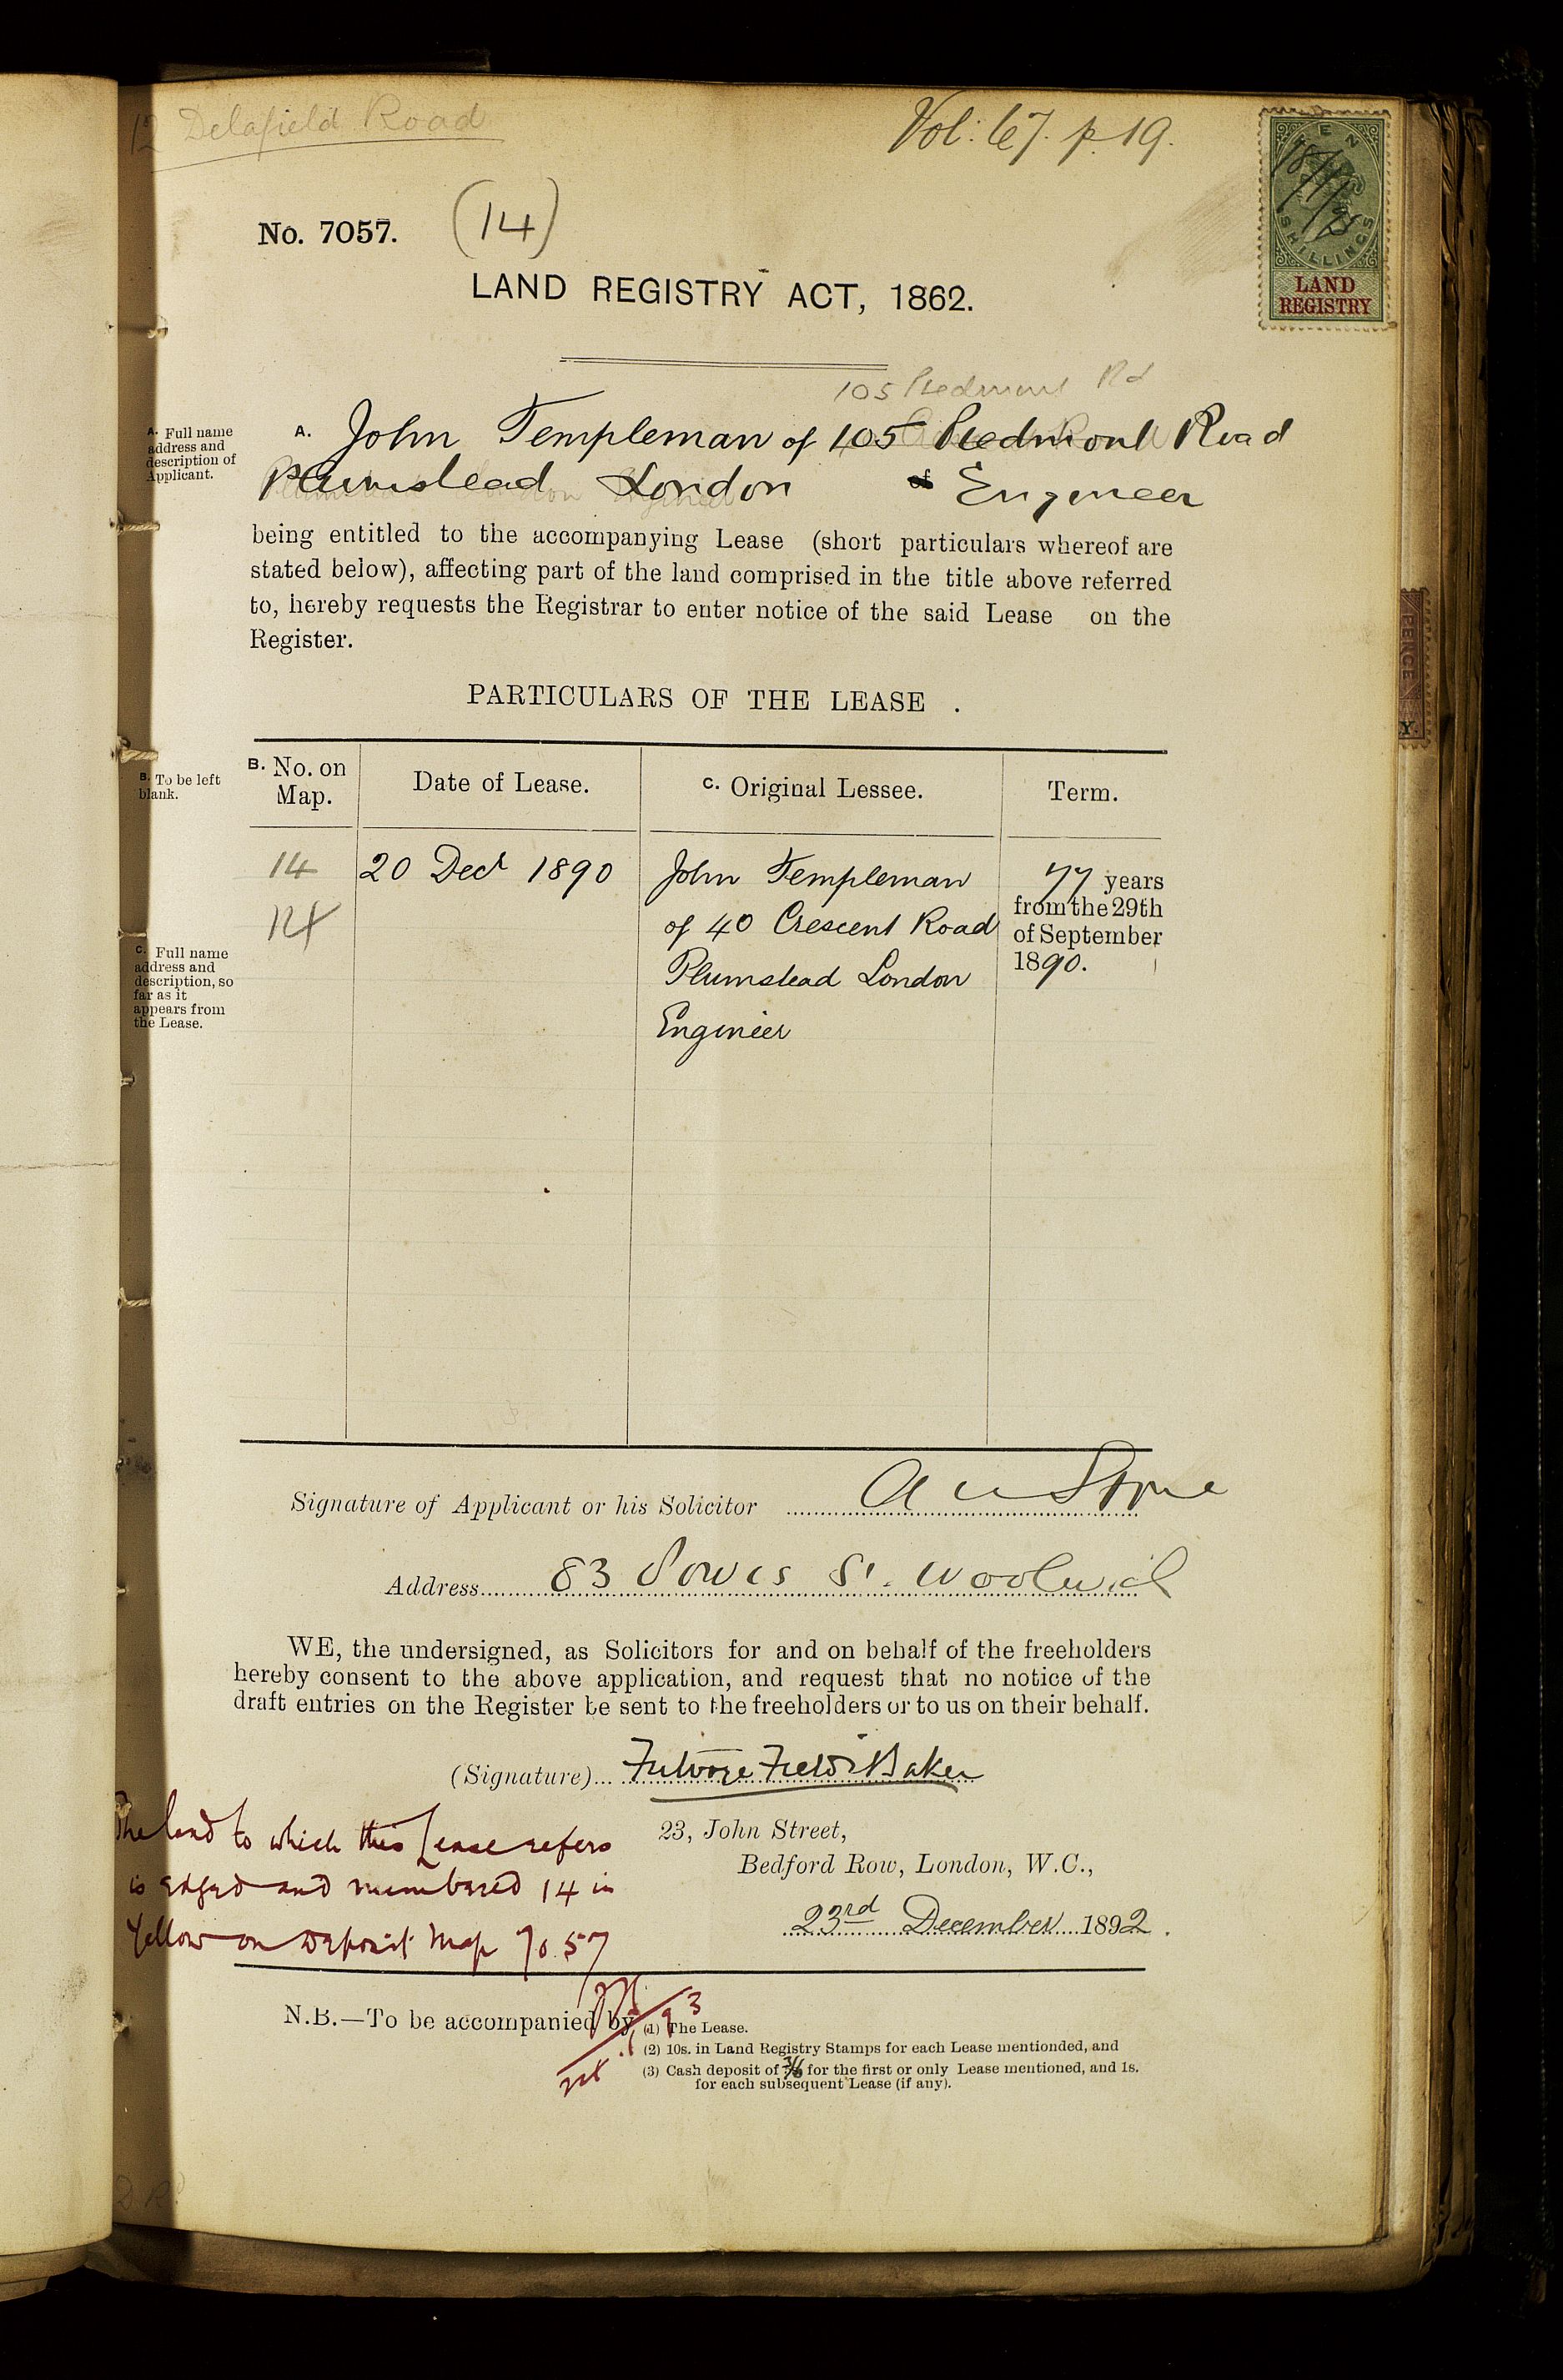 12 Delafield Road
Vol: 67. p. 19.
TEN
SHILLINGS
18/1/93
LAND
REGISTRY
No. 7057. (14)
LAND REGISTRY ACT, 1862.
105 Piedmont Rd
A. Full name
address and
description of
Applicant.
A. John Templeman of 105 Piedmont Road
Plumstead London of Engineer
being entitled to the accompanying Lease (short particulars whereof are
stated below), affecting part of the land comprised in the title above referred
to, hereby requests the Registrar to enter notice of the said Lease on the
Register.
PENCE
Y.
PARTICULARS OF THE LEASE .
B. To be left
blank.
B. No. on
Map.
Date of Lease.
C. Original Lessee.
Term.
14
14
20 Decr 1890
John Templeman
of 40 Crescent Road
Plumstead London
Engineer
77 years
from the 29th
of September
1890.
C. Full name
address and
description, so
far as it
appears from
the Lease.
Signature of Applicant or his Solicitor
Address 83 Powis St. Woolwich
WE, the undersigned, as Solicitors for and on behalf of the freeholders
hereby consent to the above application, and request that no notice of the
draft entries on the Register be sent to the freeholders or to us on their behalf.
(Signature) Baker
23, John Street,
Bedford Row, London, W.C.,
23rd December 1892.
The land to which this Lease refers
is edged and numbered 14 in
Yellow on Deposit Map 7057
N.B.—To be accompanied by (1) The Lease.
(2) 10s. in Land Registry Stamps for each Lease mentionded, and
(3) Cash deposit of 3/6 for the first or only Lease mentioned, and 1s.
for each subsequent Lease (if any).